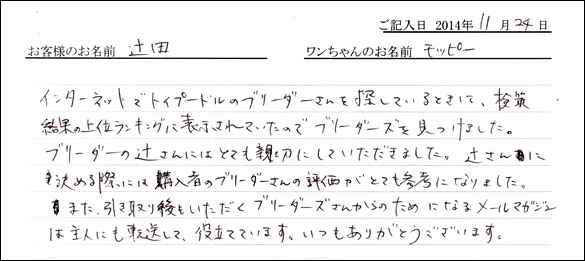 ご記入日 2014年 11月 24日
お客様のお名前 辻田 ワンちゃんのお名前 モッピー
インターネットでトイプードルのブリーダーさんを探しているときに、検策
結果の上位ランキングに表示されていたのでブリーダーズを見つけました。
ブリーダーの辻さんにはとても親切にしていただきました。辻さんに
決める際には購入者のブリーダーさんの評価がとても参考になりました。
また、引き取り後もいただくブリーダーズさんからのためになるメールマガジン
は主人にも転送して、役立てています。いつもありがとうございます。